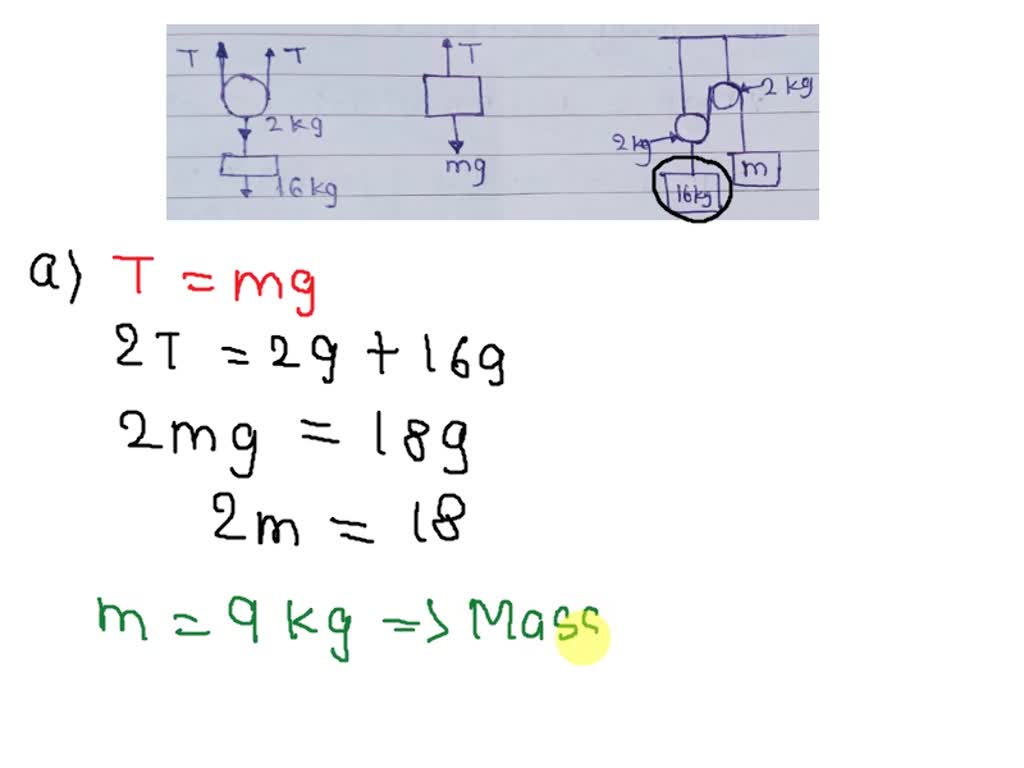 T T T
2 kg
2 kg
2 kg
mg
m
16 kg
16kg
a) T = mg
2T = 2g + 16g
2mg = 18g
2m = 18
m = 9 kg => Mass